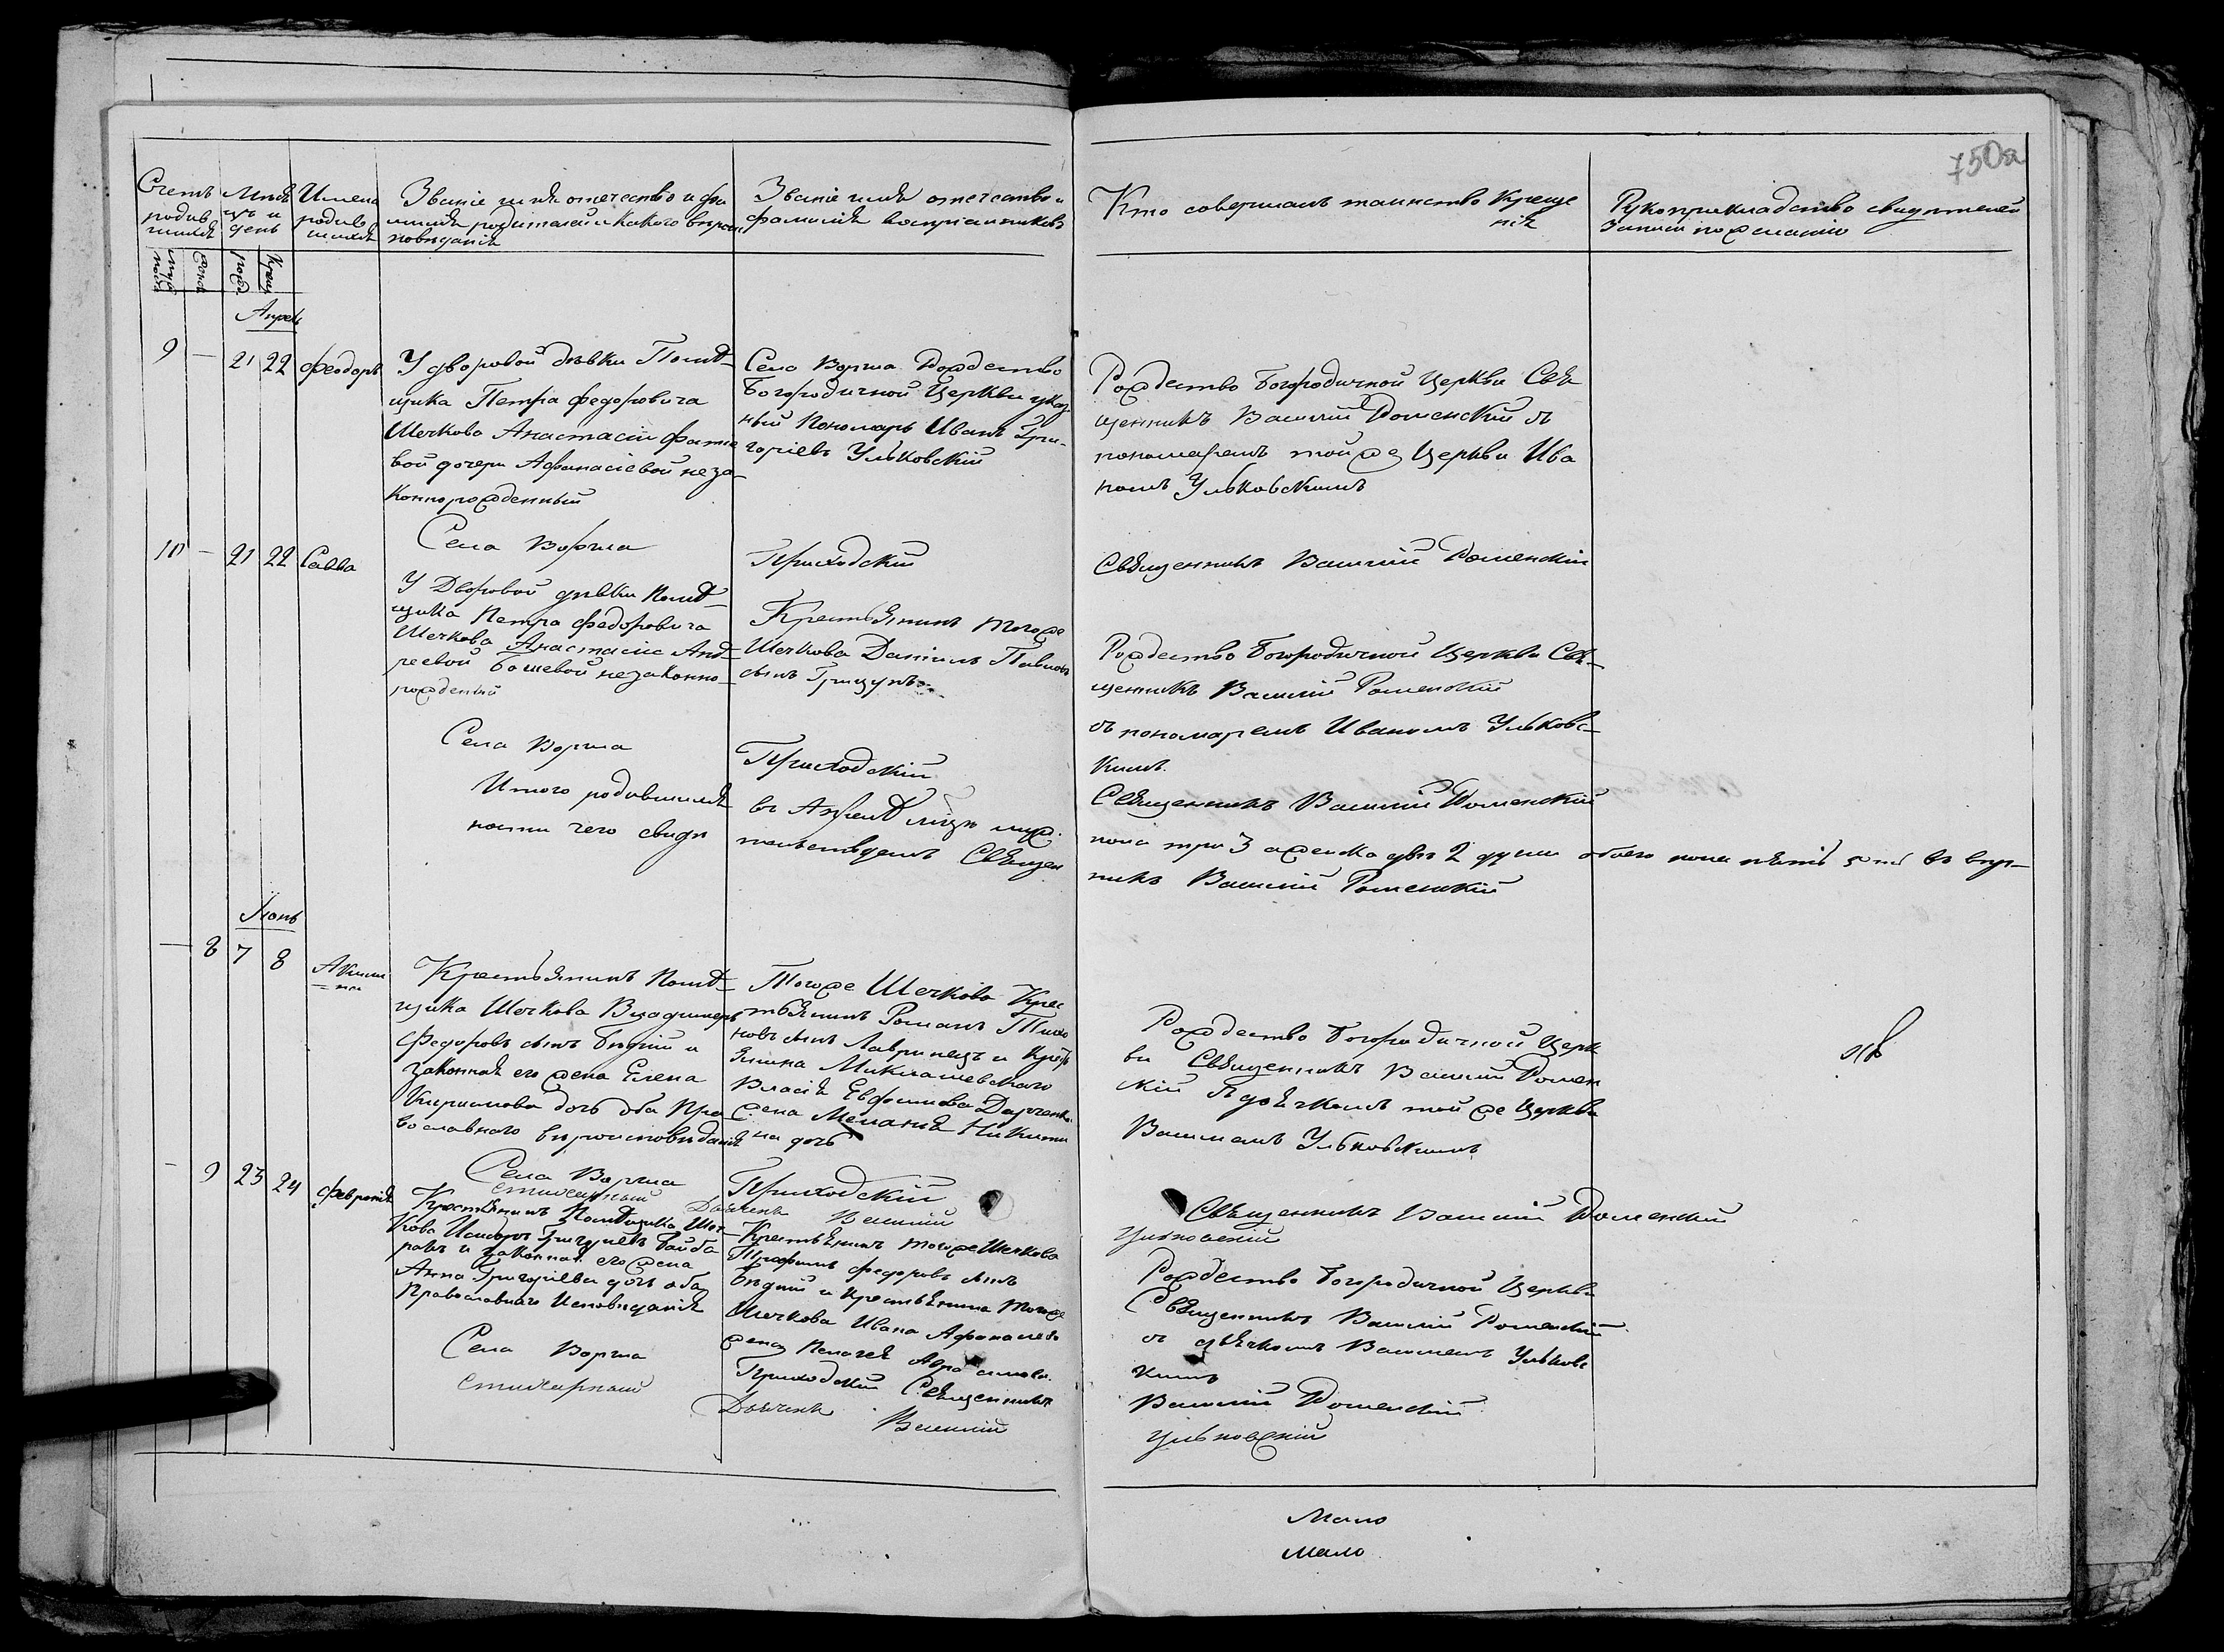 750а
Счетъ родив шихся
Мѣся цъ и день
Имена родив шихся
Званіе имя отечество и фа
милія родителей и какого вѣрои
повѣданія
Званіе имя отечество и
фамилія воспріемниковъ
Кто совершалъ таинство креще
нія
Рукоприкладство свидѣтелей
записи по желанію
муж пола
женс
рожд
крещ
Апрель
9 — 21 22 Феодоръ
У дворовой дѣвки Помѣ-
щика Петра Федоровича
Шечкова Анастасіи
вой дочери Афанасіевой неза-
коннорожденный
Села Воргла Рождество
Богородичной Церкви указ
ный Пономарь Иванъ Гри-
горіевъ Ульковскій
Рождество Богородичной Церкви Свя
щенникъ Василій Роменскій съ
пономаремъ той же Церкви Ива
номъ Ульковскимъ
Села Воргла
Приходскій
Священникъ Василій Роменскій
10 — 21 22 Савва
У Дворовой дѣвки Помѣ-
щика Петра Федоровича
Шечкова Анастасіи Анд-
реевой незаконно-
рожденый
Крестьянинъ тогоже
Шечкова Даніилъ Павловъ
сынъ Грицунъ
Рождество Богородичной Церкви Свя-
щенникъ Василій Роменскій
съ пономаремъ Иваномъ Ульковс-
кимъ
Села Воргла
Приходскій
Священникъ Василій Роменскій
Итого родившихся
въ Апрелѣ мцѣ муж.
пола три 3 а женска двѣ 2 души обоего пола пять 5 ть въ вѣр-
ности чего свидѣ
тельствуемъ Священ
никъ Василій Роменскій
Іюнь
— 8 7 8 Акили
на
Крестьянинъ Помѣ-
щика Шечкова Владимеръ
Федоровъ сынъ Бѣдній и
законная его жена Елена
Кирилова дочь оба Пра
вославнаго вѣроисповѣданія
Тогоже Шечкова Крес
тьянинъ Романъ Тихо
новъ сынъ Лавринецъ и Крестья
янина Миклашевскаго
Власія Евфимова
жена Меланія Никити
на дочь
Рождество Богородичной Церк
ви Священникъ Василій Ромен
скій дьячкомъ той же Церкви
Василемъ Ульковскимъ
Села Воргла
Приходскій
Священникъ Василій Роменскій
стихарный
Дьячекъ
Василій
Ульковскій
— 9 23 24 Февронія
Крестьянинъ Помѣщика Шеч-
кова Исидоръ Григоріевъ Байба
ракъ и законная его жена
Анна Григоріева дочь оба
Православнаго Исповѣданія
Крестьянинъ тогоже Шечкова
Трофимъ Федоровъ сынъ
Бѣдній и крестьянина тогоже
Шечкова Ивана Афанасіева
жена Пелагея
Рождество Богородичной Церкви
Священникъ Василій Роменскій
съ дьячкомъ Василемъ Ульковс
кимъ
Села Воргла
Приходскій Священникъ
Василій Роменскій
стихарный
Дьячекъ
Василій
Ульковскій
Мало
Мало